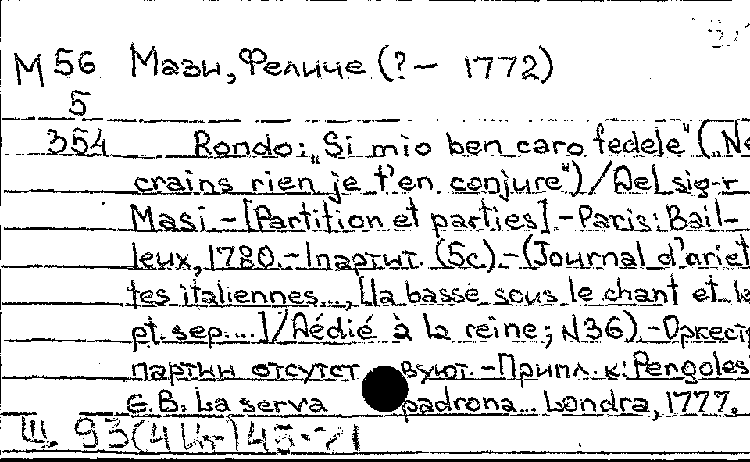 М 56 Мази, Феличе (?— 1772)
5
354 Rondo: „Si mio ben caro fedele" („Ne
crains rien je t'en conjure") / Del sig-r
Masi. – [Partition et parties]. – Paris: Bail-
leux, 1780. – 1 партит. (5с). – (Journal d'ariet
tes italiennes..., [la basse sous le chant et le
pt. sep....] / Dédié à la reine; N36). – Оркестр
партии отсутствуют. – Припл. к: Pergoles
G.B. La serva padrona... Londra, 1777.